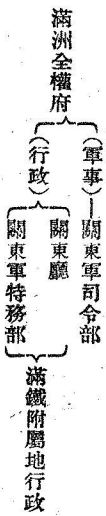 滿洲全權府
（軍事）—關東軍司令部
（行政）
關東廳
關東軍特務部
滿鐵附屬地行政